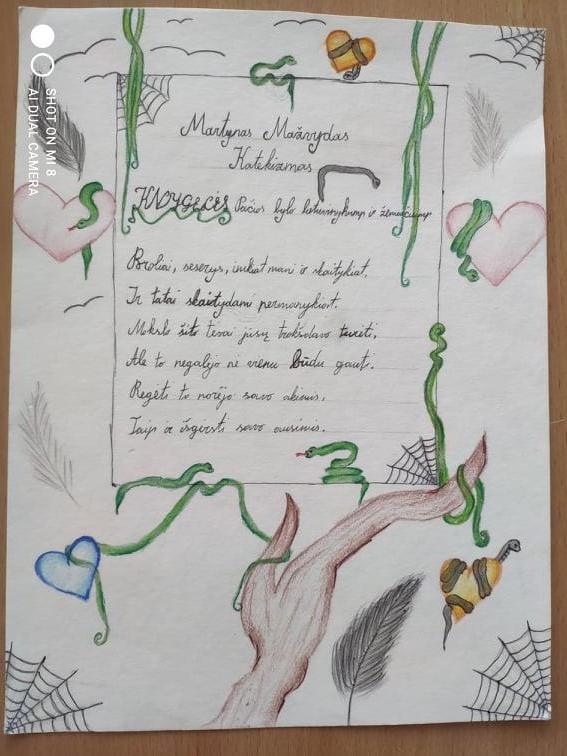 Martynas Mažvydas
Katekizmas
KNYGELĖS Pačios bylo lietuvinykump ir žemaičiump
Broliai, seserys, imkiat mani ir skaitykiat,
Ir tatai skaitydami permanykiat.
Mokslo šito tėvai jūsų trokšdavo turėti,
Ale to negalėjo nė vienu būdu gauti.
Regėti to norėjo savo akimis,
Taip ir išgirsti savo ausimis.
SHOT ON MI 8
AI DUAL CAMERA